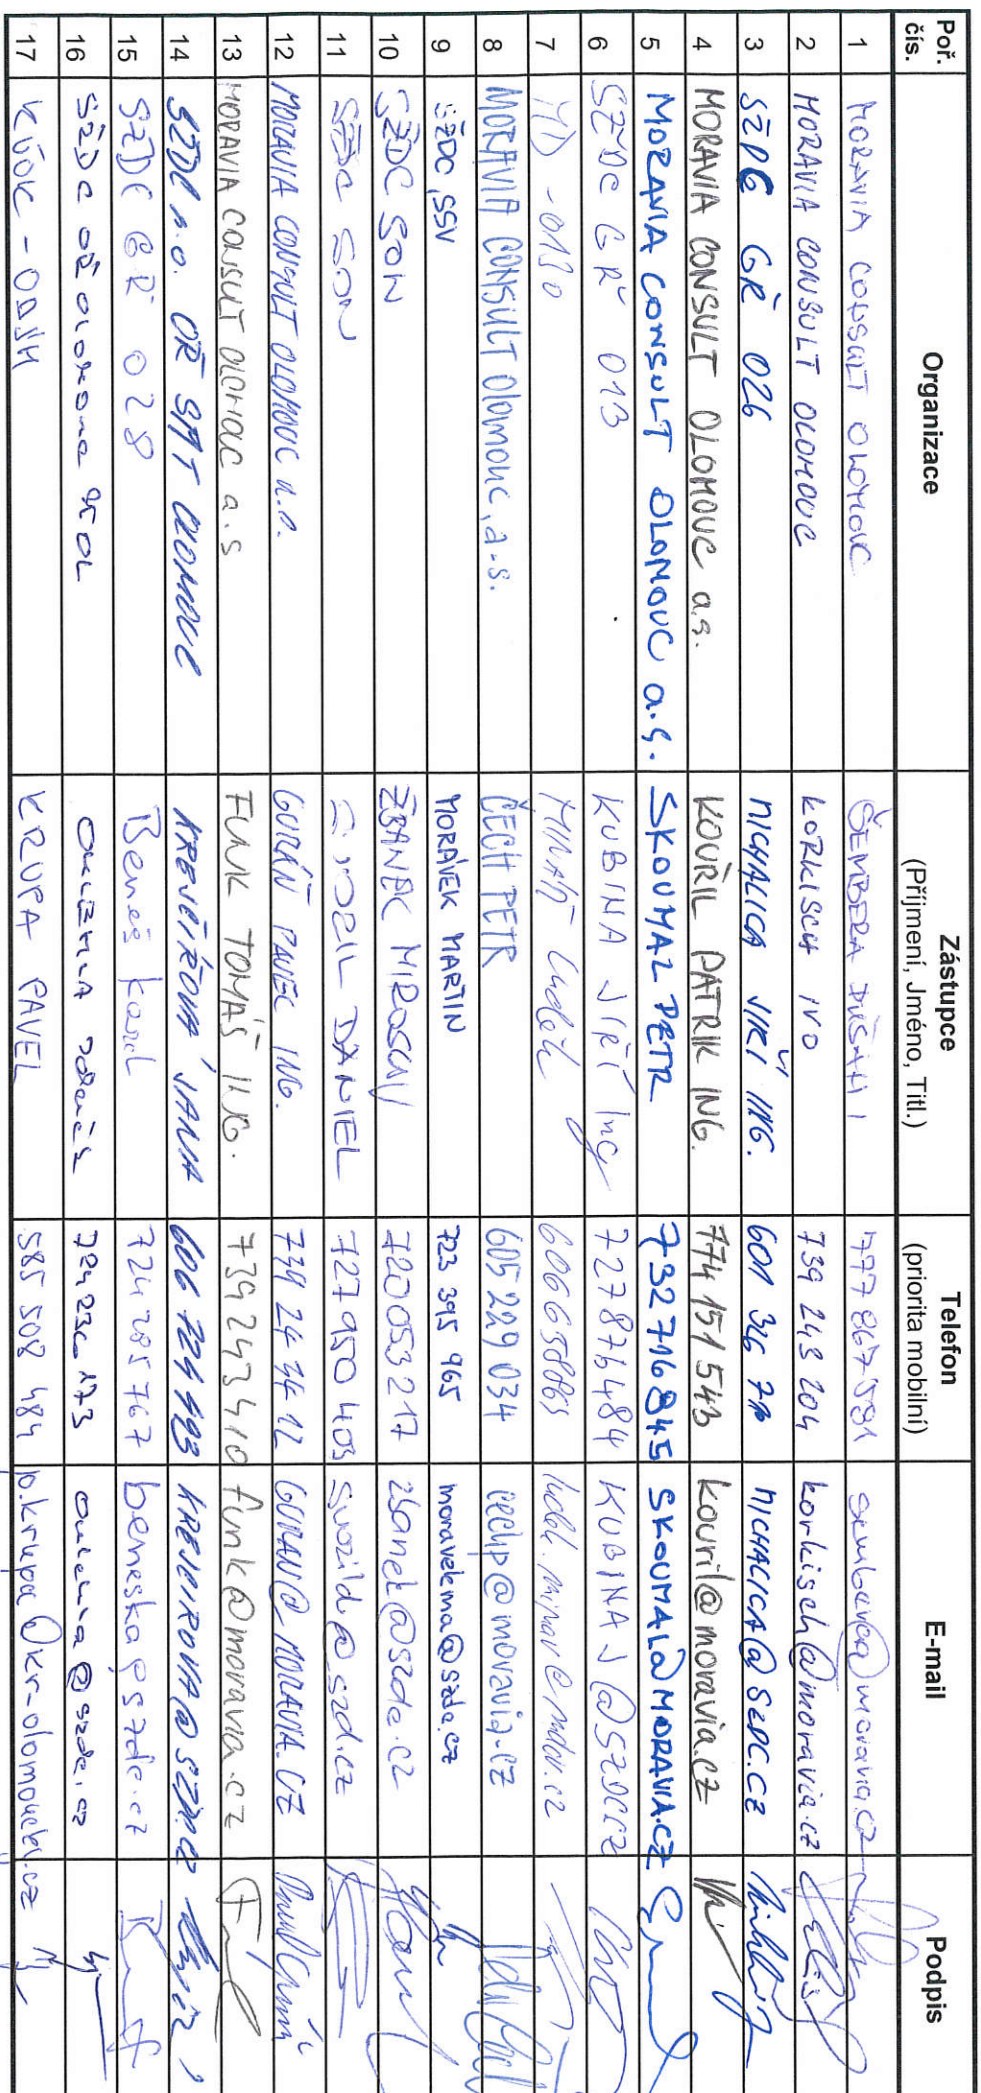 Poř. čís. Organizace Zástupce (Příjmení, Jméno, Titl.) Telefon (priorita mobilní) E-mail Podpis
1 MORAVIA CONSULT OLOMOUC ŠEMBERA DUŠAN 777 867 581 sembera@moravia.cz
2 MORAVIA CONSULT OLOMOUC KORKISCH IVO 739 243 204 korkisch@moravia.cz
3 SŽDC GŘ 026 MICHALICA JIŘÍ ING. 601 346 MICHALICA@SZDC.CZ
4 MORAVIA CONSULT OLOMOUC a.s. KOUŘIL PATRIK ING. 774 151 543 kouril@moravia.cz
5 MORAVIA CONSULT OLOMOUC a.s. SKOUMAL PETR 732716845 SKOUMAL@MORAVIA.CZ
6 SŽDC GŘ 013 KUBINA JIŘÍ Ing 727875484 KUBINAJ@SZDC.CZ
7 MD - 0130 Luděk 606658863
8 MORAVIA CONSULT Olomouc, a.s. ČECH PETR 605 229 034 cechp@moravia.cz
9 SŽDC, SSV MORÁVEK MARTIN 723 395 965 moravekma@szdc.cz
10 SŽDC SON ZBANEK MIROSLAV 720053217 zbanek@szdc.cz
11 SŽDC SON SVOZIL DANIEL 727950403 svozild@szdc.cz
12 MORAVIA CONSULT OLOMOUC a.s. GURÁŇ PAVEL ING. 739 24 34 12 GURAN@MORAVIA.CZ
13 MORAVIA CONSULT OLOMOUC a.s FUNK TOMÁŠ ING. 739243410 funk@moravia.cz
14 SŽDC s.o. OŘ OLOMOUC KREJČIŘOVÁ JANA 606 724 493 KREJCIROVA@SZDC.CZ
15 SŽDC GŘ 028 Beneš Karel 724 285 767 beneska@szdc.cz
16 SŽDC OŘ OLOMOUC Zdeněk 173 @szdc.cz
17 KÚOK - ODSH KRUPA PAVEL 585 508 484 p.krupa@kr-olomoucky.cz